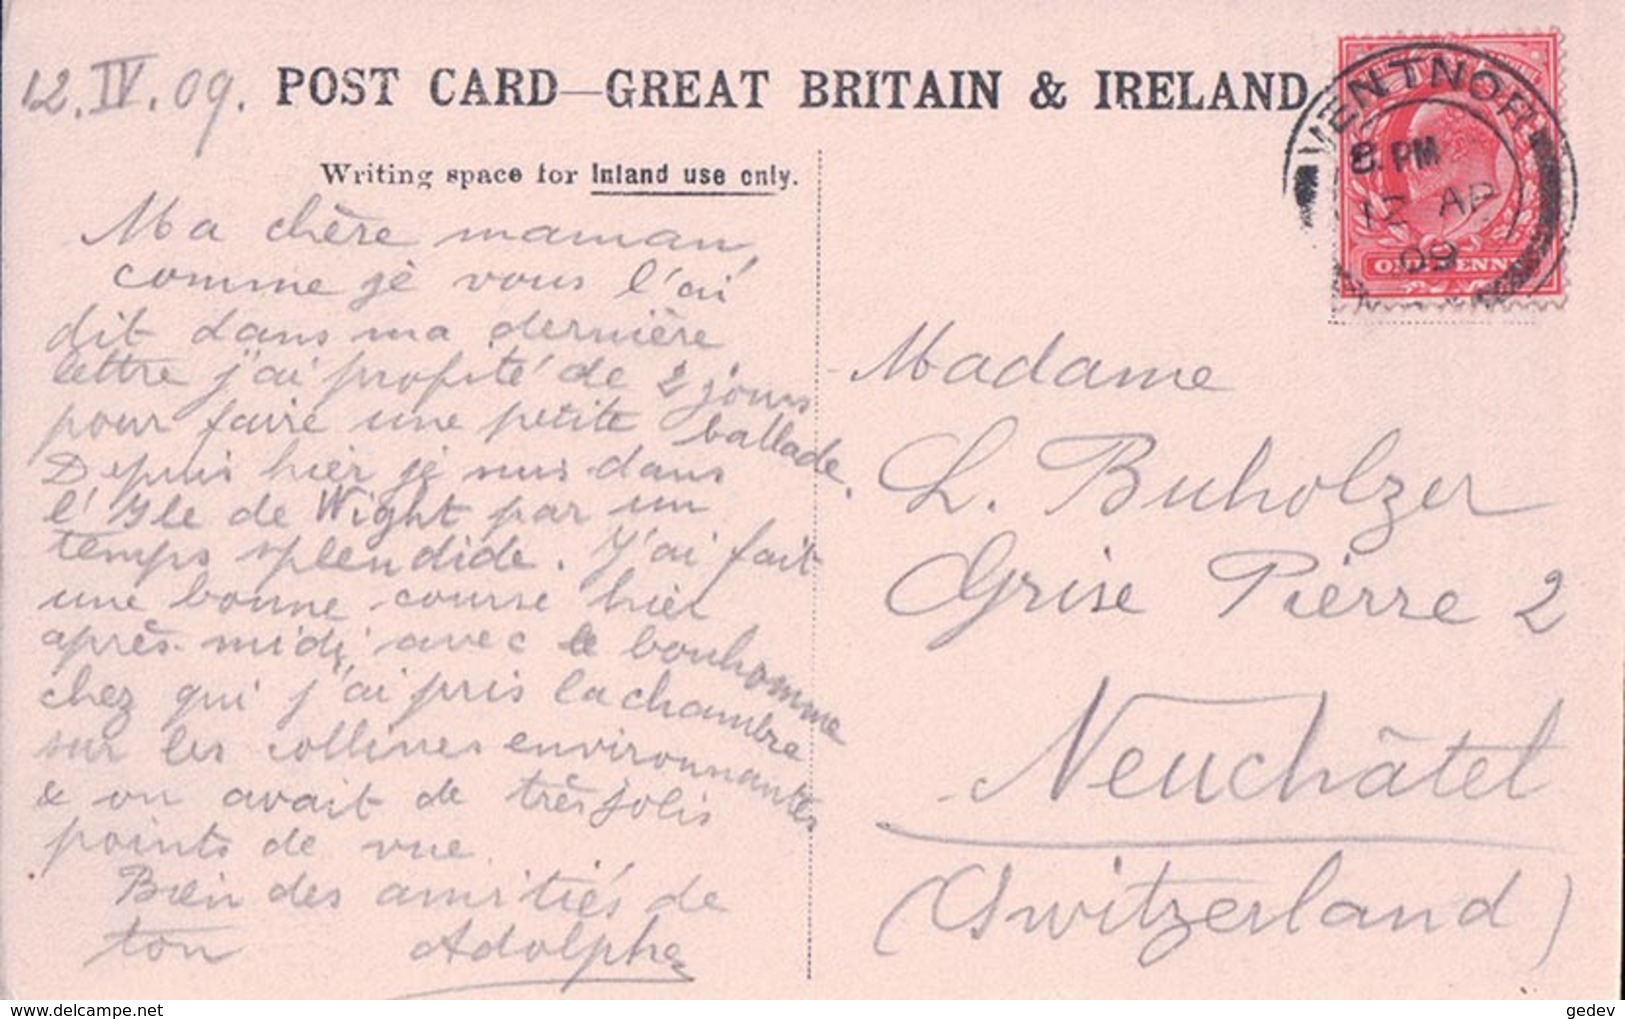 12.IV.09.
POST CARD—GREAT BRITAIN & IRELAND
Writing space for Inland use only.
Ma chère maman,
comme je vous l'ai
dit dans ma dernière
lettre j'ai profité de 2 jours
pour faire une petite ballade.
Depuis hier je suis dans
l'Yle de Wight par un
temps splendide. J'ai fait
une bonne course hier
après-midi avec le bonhomme
chez qui j'ai pris la chambre
sur les collines environnantes
& on avait de très jolis
points de vue.
Bien des amitiés de
ton Adolphe
VENTNOR
8. PM
12 AP
09
ONE PENNY
Madame
L. Buholzer
Grise Pierre 2
Neuchâtel
(Switzerland)
https://www.delcampe.net
gedev